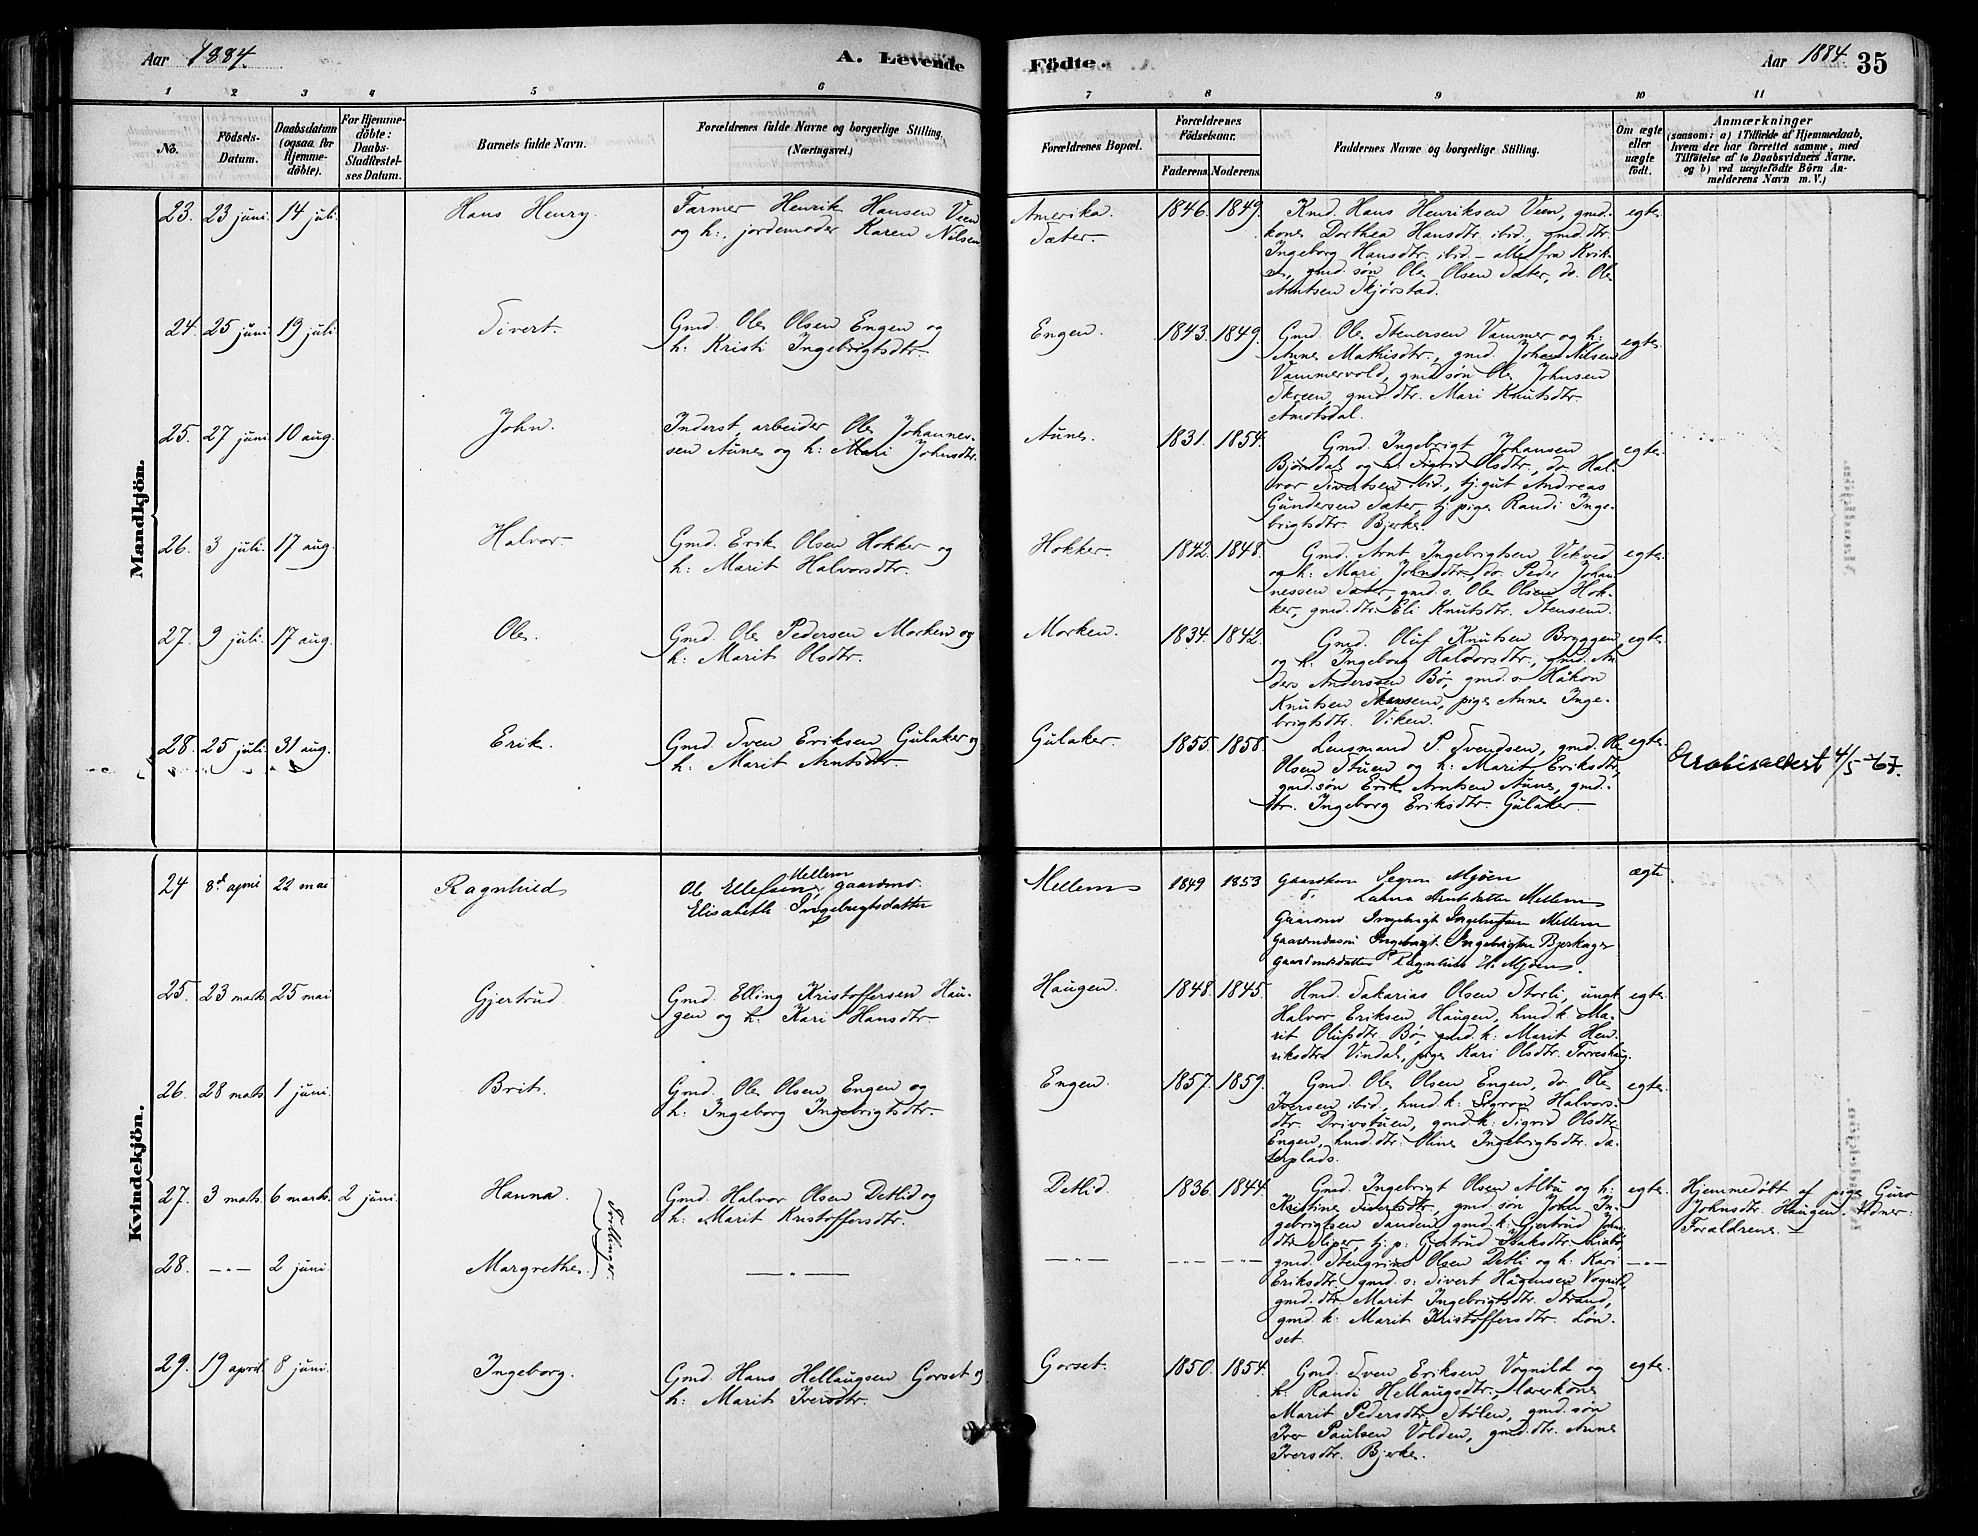 Aar 1884.
A. Levende
Födte.
Aar 1884.
35
1 2 3 4 5 6 7 8 9 10 11
No.
Födsels-
Datum.
Daabsdatum
(ogsaa for
Hjemme-
döbte).
For Hjemme-
döbte:
Daabs-
Stadfæstel-
ses Datum.
Barnets fulde Navn.
Forældrenes fulde Navne og borgerlige Stilling.
(Næringsvei.)
Forældrenes Bopæl.
Forældrenes
Födselsaar.
Faderens. Moderens.
Faddernes Navne og borgerlige Stilling.
Om ægte
eller
uægte
födt.
Anmærkninger
(saasom: a) i Tilfælde af Hjemmedaab,
hvem der har forrettet samme, med
Tilföielse af to Daabsvidners Navne.
og b) ved uægtefödte Börn An-
melderens Navn m. V.)
Mandkjön.
23. 23 juni. 14 juli. Hans Henry.
Farmer Henrik Hansen Veen
og h:, jordemoder Karen Nilsen
Amerika.
Sæter.
1846. 1849.
Kmd. Hans Henriksen Veen, gmd.
kone Dorthea Hansdtr. ibid, gmd.dtr.
Ingeborg Hansdtr. ibid. – alle fra Kvik-
ne, gmd. søn Ole Olsen Sæter, do. Ole
Arntsen Skjørstad.
egte.
24. 25 juni. 19 juli. Sivert.
Gmd. Ole Olsen Engen og
h: Kristi Ingebrigtsdtr.
Engen.
1843. 1849.
Gmd. Ole Stenersen Vammer og h:
Anne Mathisdtr., gmd. Johan Nilsen
Vammervold, gmd. søn Ole Johnsen
Skreen, gmd. dtr. Mari Knutsdtr.
Amotsdal.
egte.
25. 27 juni. 10 aug. John.
Inderst, arbeider Ole Johannes-
sen Aune og h: Mari Johnsdtr.
Aune.
1831. 1854.
Gmd. Ingebrigt Johansen
Bjørndal og h. Sigrid Olsdtr., do. Hal-
vor Sivertsen ibid, tj. gut Andreas
Gundersen Sæter, tj. pige Randi Inge-
brigtsdtr. Bjerke.
egte.
26. 3 juli. 17 aug. Halvor.
Gmd. Erik Olsen Hokker og
h: Marit Halvorsdtr.
Hokker.
1842. 1848.
Gmd. Arnt Ingebrigtsen Vekved
og h: Mari Johnsdtr., do. Peder Johan-
nessen Sæter, gmd. s. Ole Olsen Hok-
ker, gmd. dtr. Eli Knutsdtr. Stensem.
egte.
27. 9 juli. 17 aug. Ole.
Gmd. Ole Pedersen Morken og
h: Marit Olsdtr.
Morken.
1834. 1842.
Gmd. Oluf Knutsen Bryggen
og h. Ingeborg Halvorsdtr., gmd. An-
ders Anderssen Bø, gmd. s. Håkon
Knutsen Stensem, pige Anne Inge-
brigtsdtr. Viken.
egte.
28. 25 juli. 31 aug. Erik.
Gmd. Sven Eriksen Gulaker og
h: Marit Arntsdtr.
Gulaker.
1855. 1858.
Lensmand P. Svendsen, gmd. Ole
Olsen Stuen og h: Marit Eriksdtr.,
gmd. søn Erik Arntsen Aune, gmd.
dtr. Ingeborg Eriksdtr. Gulaker.
egte.
4/5
Kvindekjön.
24 8de april 22 mai Ragnhild
Ole Ellefsen Mellem gaardmd.
Elisabeth Ingebrigtsdatter
Mellem
1849 1853
Gaardkone Segron Mjøen
Arntsdatter Mellem
Gaardmd Ingebrigt Ingebrigtsen Mellem
Gaardmdssøn Ingebrigt Ingebrigtsen Bjerkager
Gaardmdsdatter Ragnhild H. Mjøen.
ægte
25. 23 marts. 25 mai Gjertrud.
Gmd. Elling Kristoffersen Hau-
gen og h: Kari Hansdtr.
Haugen.
1848. 1845.
Hmd. Sakarias Olsen Storli, ungk.
Halvor Eriksen Haugen, hmd. k. Ma-
rit Olufsdtr. Bø, gmd. k: Marit Hen-
riksdtr. Vindal, pige Kari Olsdtr. Torreshaug.
egte.
26. 28 marts 1 juni. Brit.
Gmd. Ole Olsen Engen og
h: Ingeborg Ingebrigtsdtr.
Engen.
1857. 1859.
Gmd. Ole Olsen Engen, do. Ole
Iversen ibid., hmd. k: Segron Halvors-
dtr. Drivstuen, gmd. k: Sigrid Olsdtr.
Engen, hmd. dtr: Oline Ingebrigtsdtr. Sæ-
terplads.
egte.
27. 3 marts. 6 marts. 2 juni. Hanna.
Tvillinger.
Gmd. Halvor Olsen Detlid og
h: Marit Kristoffersdtr.
Detlid.
1836. 1844.
Gmd. Ingebrigt Olsen Ålbu og h:
Kristine Sivertsdtr., gmd. søn John In-
gebrigtsen Sanden, gmd. k: Gjertrud Johns-
dtr. Sliper, tj. p: Gjertrud Isaksdtr.
egte.
Hjemmedøbt af pige Guro
Johnsdtr. Haugen. Vidner:
Forældrene. –
28. –"– 2 juni. Margrethe.
–"–
–"–
–"– –"–
gmd. Stengrim Olsen Detli og h: Kari
Eriksdtr. gmd. s: Sivert Hågensen Vognild,
gmd. dtr. Marit Ingebrigtsdtr. Strand,
gmd. k: Marit Kristoffersdtr. Løn-
set.
–"–
29. 19 april. 8 juni. Ingeborg.
Gmd. Hans Hellaugsen Gorset og
h: Marit Iversdtr.
Gorset.
1850. 1854.
Gmd. Sven Eriksen Vognild og
k: Randi Hellaugsdtr., lærerkone
Marit Pedersdtr. Stølen, gmd. søn
Iver Paulsen Volden, gmd. dtr. Anne
Iversdtr. Bjerke.
egte.